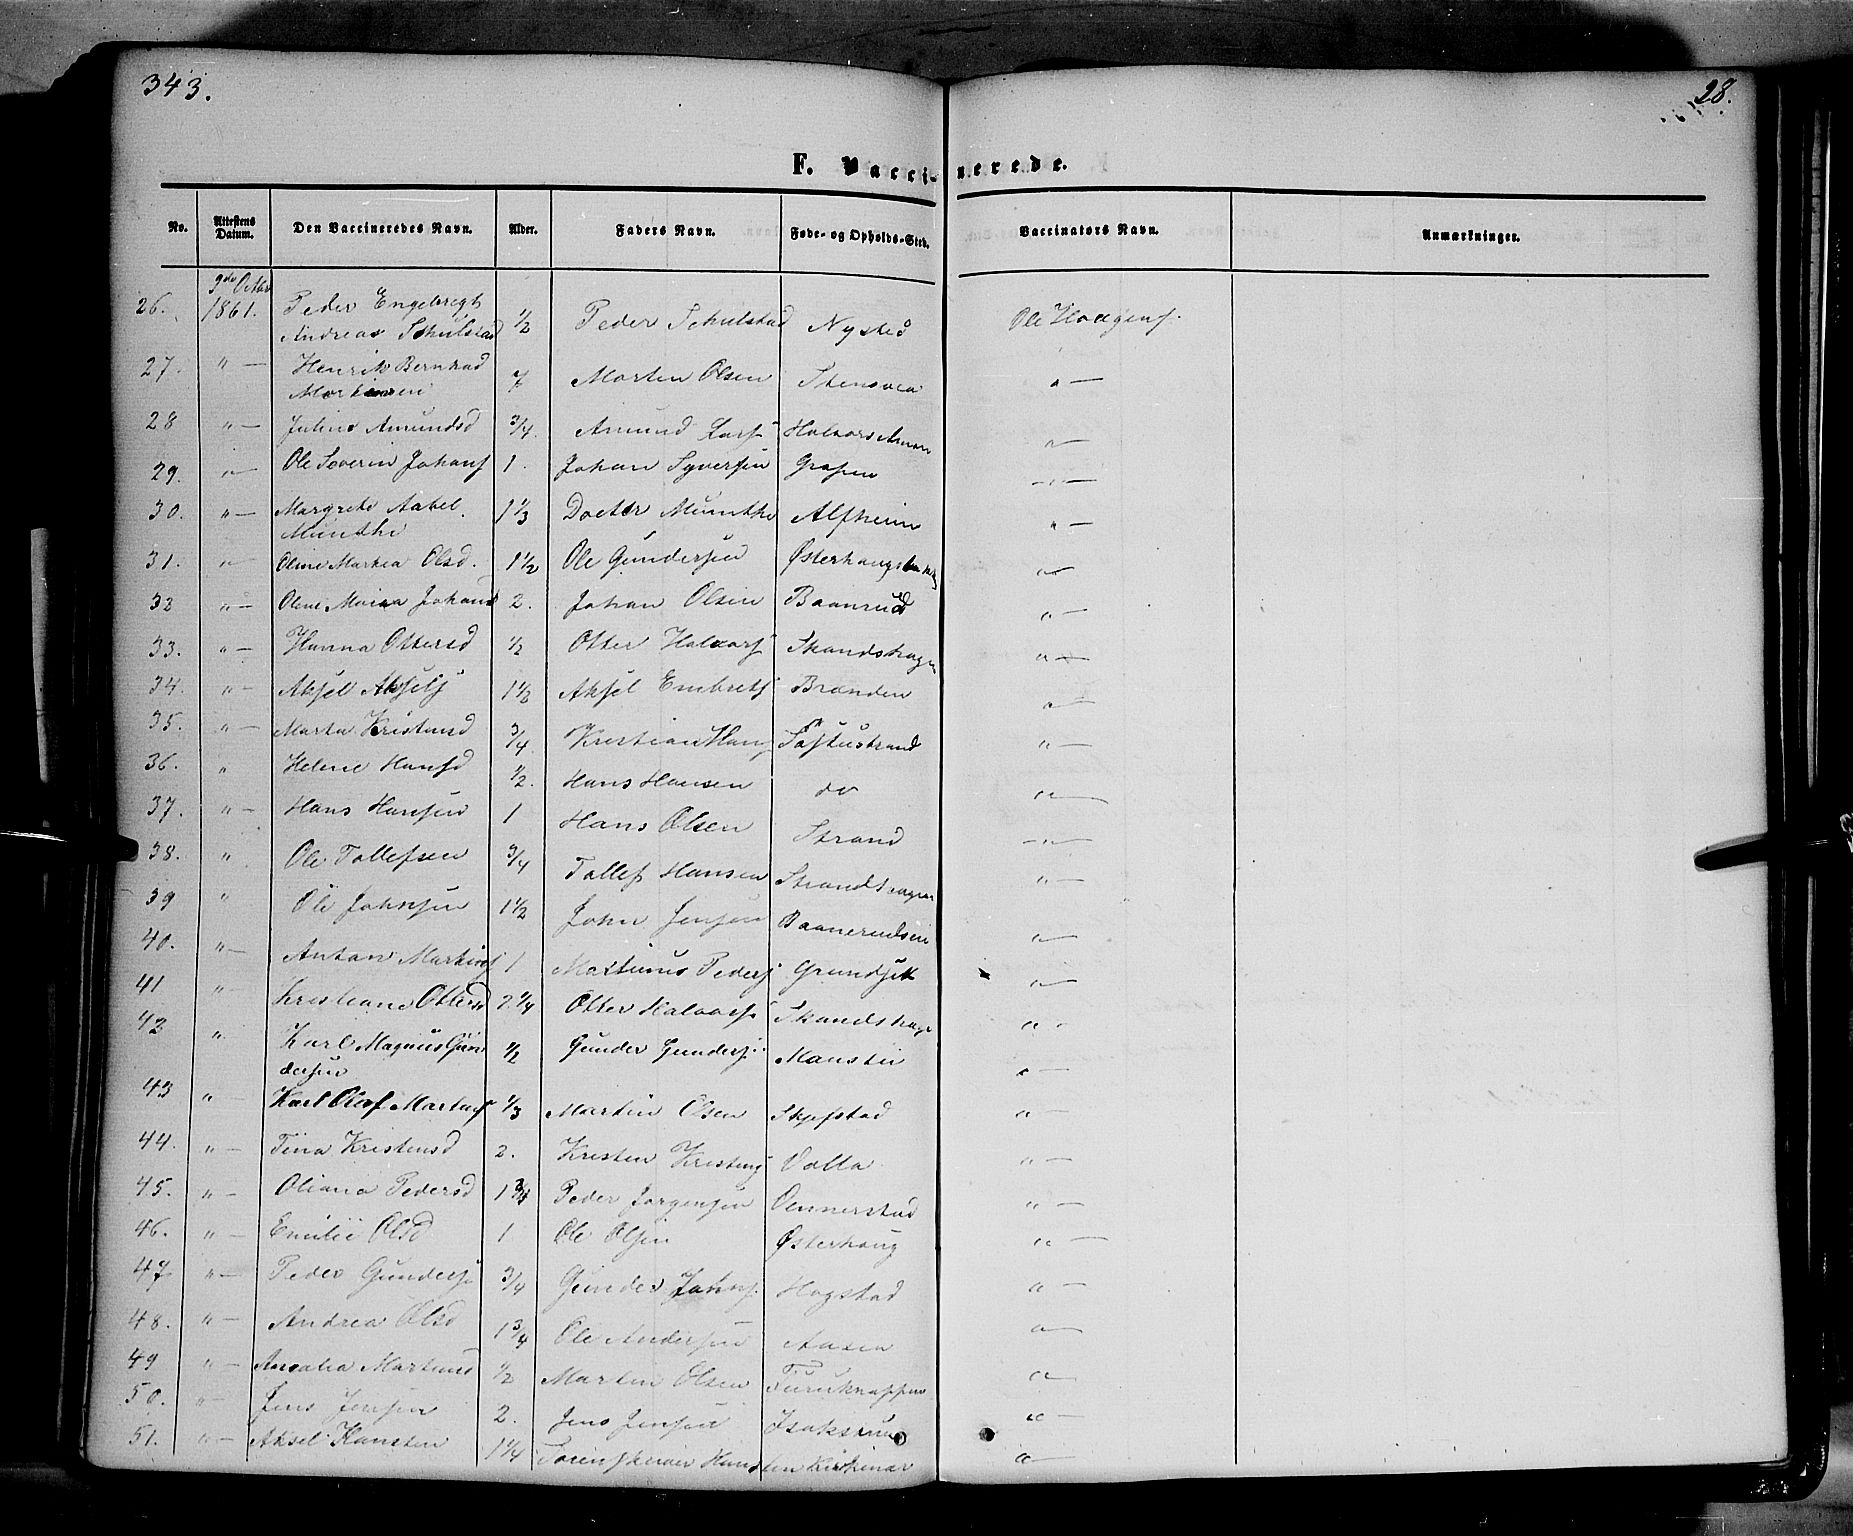 343.
28.
F. Vaccinerede.
No. Attestens Datum. Den Vaccineredes Navn. Alder. Faders Navn. Føde- og Opholds-Sted. Vaccinators Navn. Anmærkninger.
9de Octbr
26. 1861. Peder Engebregt
Andreas Schulstad 1/2 Peder Schulstad Nysted Ole Haagens.
27. " — Henrik Bernhad
Mortensen 7 Morten Olsen Stensvea " —
28 " — Julius Amundsd 3/4. Amund Larss Halvors " —
29. " — Ole Severin Johans 1. Johan Syversen Grafen — " —
30. " — Margrete Aabel
Munthe 1 1/3 Docter Munthe Alfheim " —
31. " — Oline Martea Olsd. 1 1/2 Ole Gundersen Østerhaugsbakke " —
32 " — Oline Maria Johans 2. Johan Olsen Baanrud " —
33. " — Hanna Ottersd 1/2 Otter Halvors Skandshagen " —
34. " — Aksel Aksels 1 1/2 Aksel Embrets Brænden " —
35. " — Marta Kristiansd 3/4. Kristian Hans Toftustrand " —
36. " Helene Hansd 1/2. Hans Hansen do " —
37. " — Hans Hansen 1 Hans Olsen Strand — " —
38. " Ole Tollefsen 3/4 Tollef Hansen Strandhagen " —
39 " Ole Johnsen 1 1/2 John Jensen Baanerudseie " —
40. " — Anton Martins 1 Martinus Peders Grundset " —
41 " — Kristiane Ottersd 2 1/4 Otter Halvors Skandshage " -
42 " Karl Magnus Gun
dersen 1/2 Gunder Gunders Monstei " —
43 " — Karl Olof Martins 1/3 Martin Olsen Skjefstad " —
44. " — Tina Kristensd 2. Kristen Kristens Valla " —
45. " — Oliana Pedersd 1 3/4 Peder Jørgensen Vennerstad " —
46. " — Emilie Olsd 1 Ole Olsen Østerhaug " —
47 " — Peder Gunders 3/4 Gunder Johns. Hogstad " —
48. " — Andrea Olsd 1 3/4 Ole Andersen Aasen " —
49 " — Amalia Martinsd 1/2 Martin Olsen Furuknappen " —
50. " — Jens Jensen 2. Jens Jensen Isaksrud " —
51. " — Aksel Hansten 1 1/4 Hansten Kirkenær " —